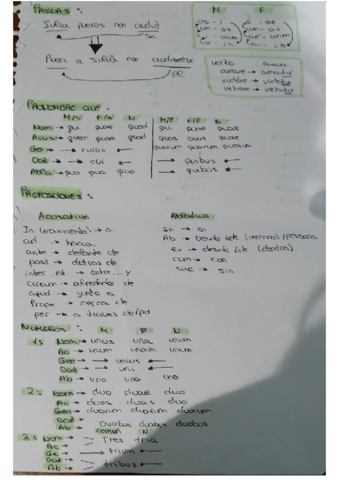 PASIVAS :
Iulia pueros non audit
Sn.
Pueri a Iulia non audiuntur
PR
M F
os - i a - ae
um - os am - as
verbo
Pronombre qui :
M/S F/S N M/P F/P N
Nom → qui quae quod qui quae quae
Acus → quem quam quod quos quas quae
Gen → cuius ← quorum quarum quorum
Dat → cui ← quibus ←
Abl → quo qua quo quibus ←
Preposiciones :
Acusativo Ablativo
In (movimiento) → a In → en
ad → hacia Ab → Desde
ante → delante de ex → desde (dentro)
post → detrás de cum → con
inter → entre...y sine → sin
circum → alrededor de
apud → junto a
Prope → cerca de
per → a través de/por
Números : M F N
1: Nom → unus una unum
Ac → unum unam unum
Gen → unius ←
Dat → uni ←
Ab → uno una uno
2: Nom → duo duae duo
Ac → duos duas duo
Gen duorum duarum duorum
Dat
Ab duobus duabus duobus
Común N
3: Nom → Tres tria
Ac →
Ge → trium ←
Dat
Ab → tribus ←